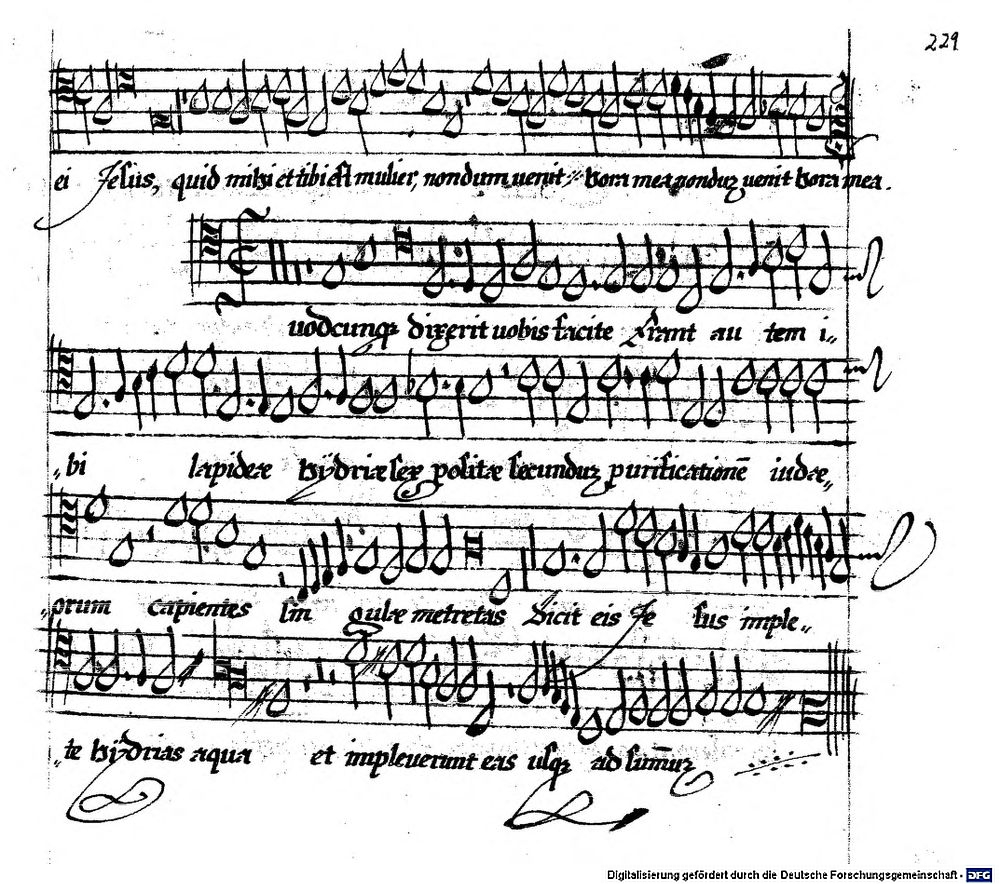 229
ei Jesus, quid mihi et tibi est mulier, nondum uenit hora mea nonduz uenit hora mea.
uodcunqz dixerit uobis facite Erant au tem i„
„bi lapideæ hydriæ sex positæ secunduz purificationē iudæ„
„orum capientes sin gulæ metretas Dicit eis Je sus imple„
„te hydrias aqua et impleuerunt eas usqz ad sum̄uz
Digitalisierung gefördert durch die Deutsche Forschungsgemeinschaft - DFG